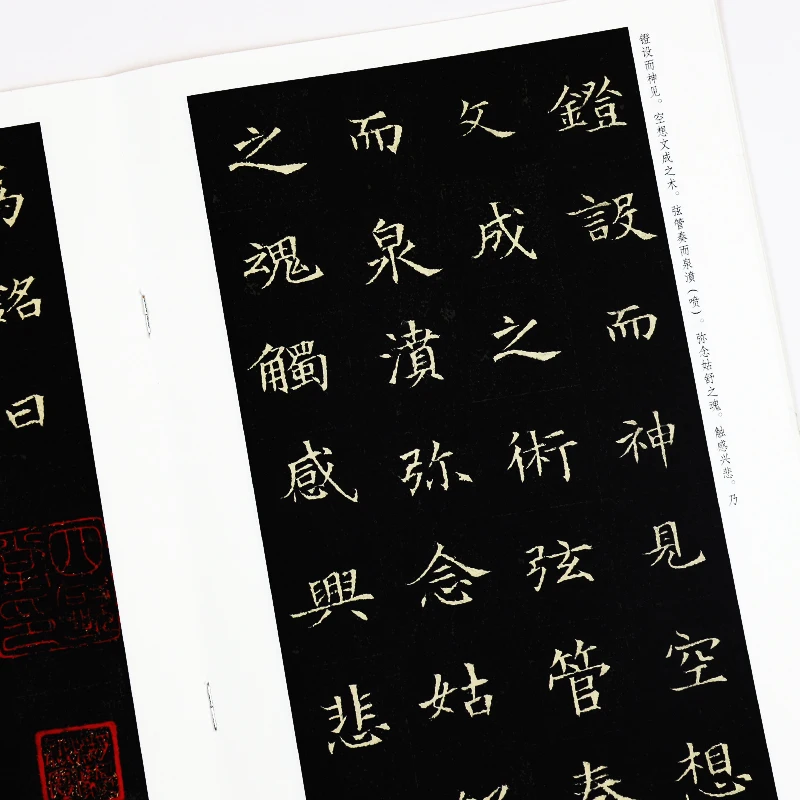 镫设而神见。空想文成之术。弦管奏而泉濆（喷）。弥念姑舒之魂。触感兴悲。乃
鐙設而神見空想
文成之術弦管奏
而泉濆弥念姑
之魂觸感興悲
為銘曰